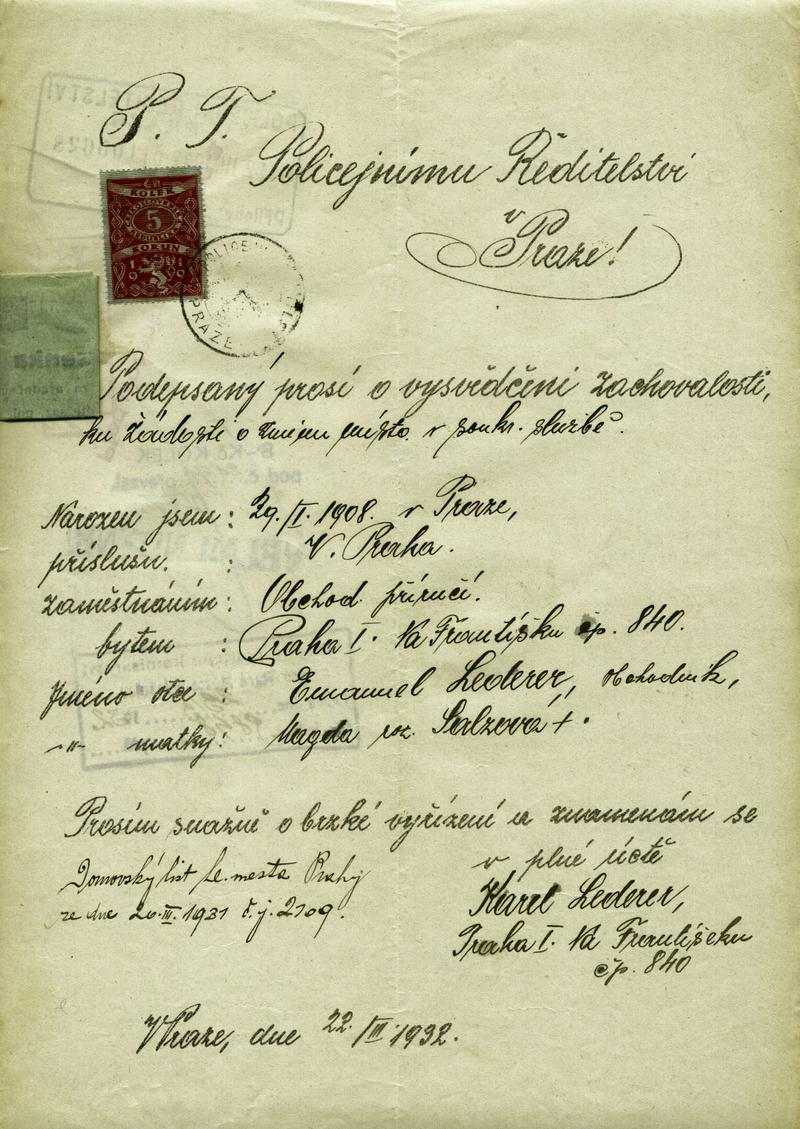 P. T.
Policejnímu Ředitelství
v Praze!
KOLEK
5
KORUN
1919
PRAZE
Podepsaný prosí o vysvědčení zachovalosti,
ku žádosti o jiném místo v soukr. službě.
Narozen jsem: 29./I. 1908. v Praze,
příslušn. : V. Praha.
zaměstnáním: Obchod. příručí.
bytem : Praha I. Na Františku čp. 840.
Jméno otce : Emanuel Lederer, obchodník,
-"- matky: Magda roz. Salzová +.
Prosím snažně o brzké vyřízení a znamenám se
v plné úctě
Domovský list hl. mesta Prahy
ze dne 20.III. 1931 č.j. 2109.
Karel Lederer,
Praha I. Na Františeku
čp. 840
V Praze, dne 22./III. 1932.